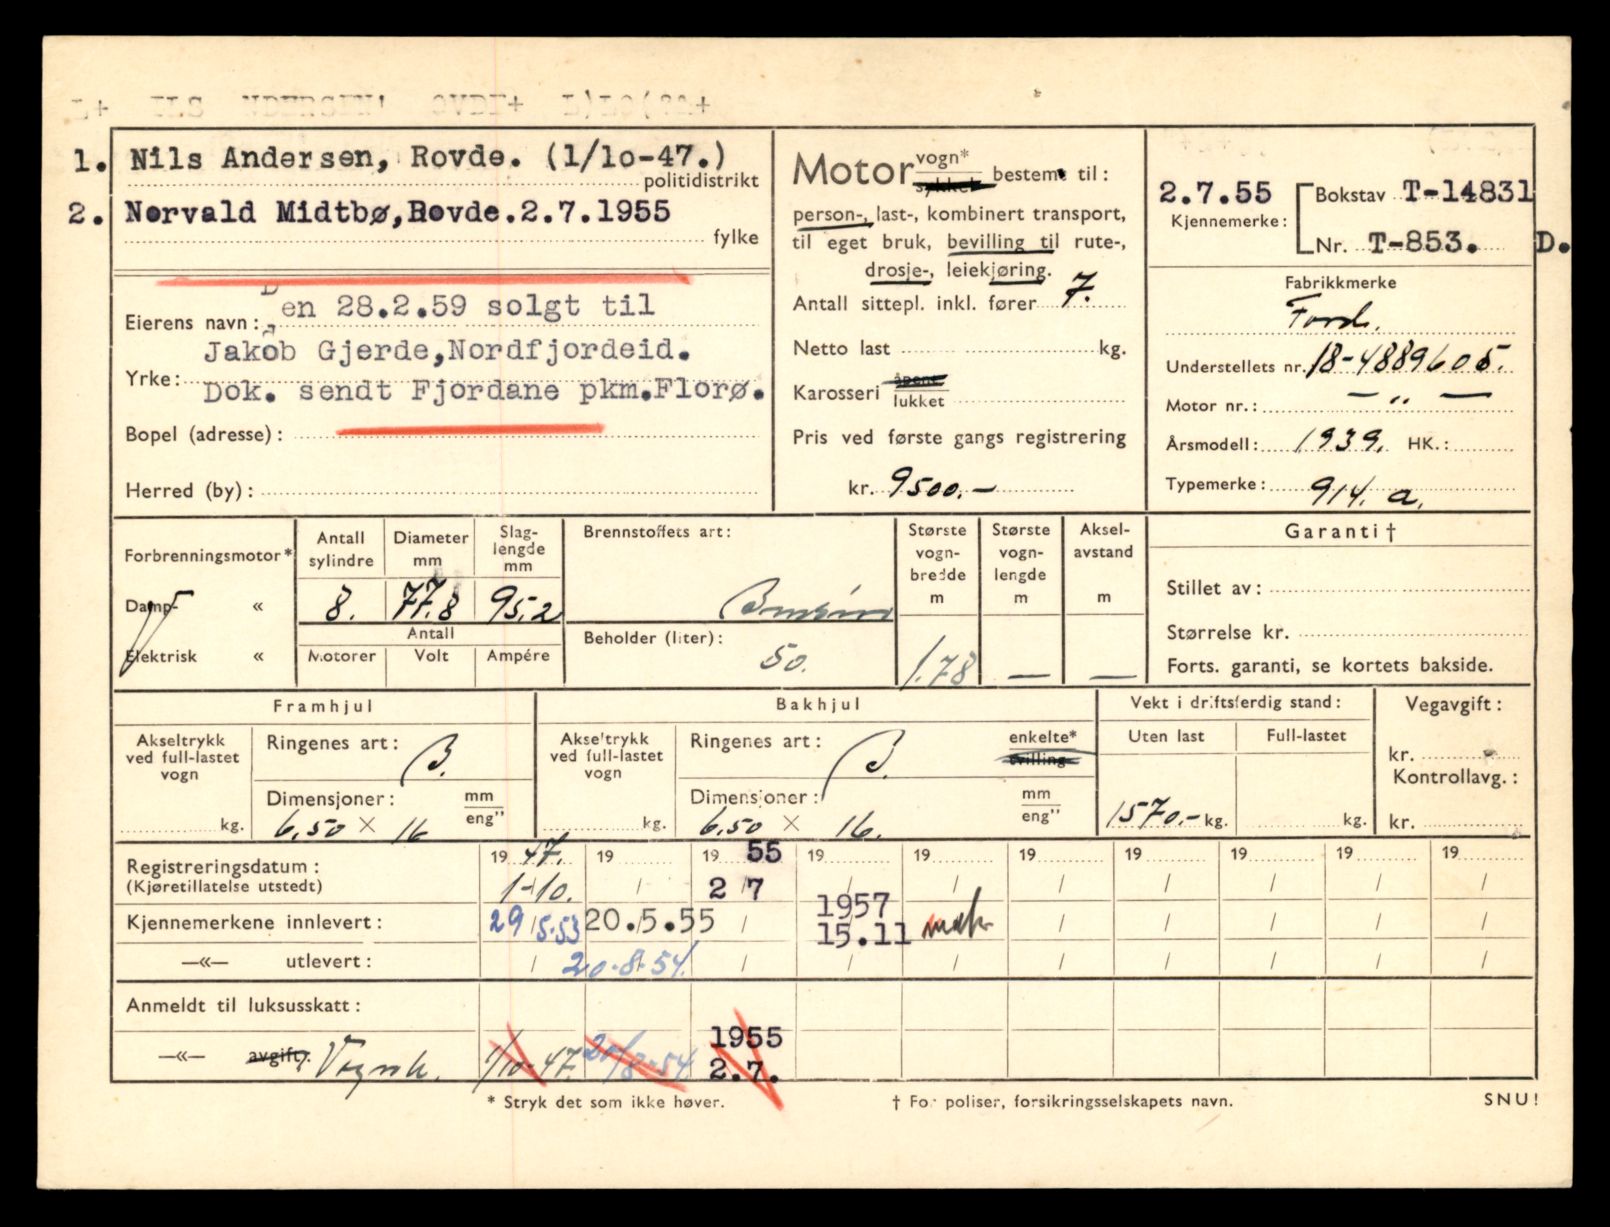 1. Nils Andersen, Rovde. (1/10-47.)
politidistrikt
2. Norvald Midtbø, Rovde. 2.7.1955
fylke
Den 28.2.59 solgt til
Eierens navn:
Jakob Gjerde, Nordfjordeid.
Yrke:
Dok. sendt Fjordane pkm. Florø.
Bopel (adresse):
Herred (by):
Motor vogn* sykkel bestemt til:
person-, last-, kombinert transport,
til eget bruk, bevilling til rute-,
drosje-, leiekjøring.
Antall sittepl. inkl. fører 7.
Netto last kg.
Karosseri åpent lukket
Pris ved første gangs registrering
kr. 9500.-
2.7.55 Bokstav T-14831
Kjennemerke:
Nr. T-853. D.
Fabrikkmerke
Ford.
Understellets nr. 18-4889605.
Motor nr.: — „ —
Årsmodell: 1939. HK.:
Typemerke: 914. a.
Forbrenningsmotor*
Damp- «
Elektrisk «
Antall sylindre
8.
Diameter mm
77.8
Slag-lengde mm
95.2
Antall
Motorer Volt Ampére
Brennstoffets art:
Bensin
Beholder (liter):
50.
Største vogn-bredde m
1.78
Største vogn-lengde m
—
Aksel-avstand m
—
Garanti †
Stillet av:
Størrelse kr.
Forts. garanti, se kortets bakside.
Framhjul
Akseltrykk ved full-lastet vogn
kg.
Ringenes art: B.
Dimensjoner: mm eng"
6,50 × 16
Bakhjul
Akseltrykk ved full-lastet vogn
kg.
Ringenes art: B. enkelte* tvilling
Dimensjoner: mm eng"
6,50 × 16.
Vekt i driftsferdig stand:
Uten last Full-lastet
1570.- kg. kg.
Vegavgift:
kr.
Kontrollavg.:
kr.
Registreringsdatum: 19 47. 19 19 55 19 19 19 19 19 19 19
(Kjøretillatelse utstedt) 1-10. / 2/7 / / / / / / /
Kjennemerkene innlevert: 29/5.53 20.5.55 / 1957 15.11 / / / / /
—«— utlevert: / 20.8.54. / / / / / / / /
Anmeldt til luksusskatt:
—«— avgift: 1/10-47. 20/8-54 1955 2.7.
* Stryk det som ikke høver.
† For poliser, forsikringsselskapets navn.
SNU!